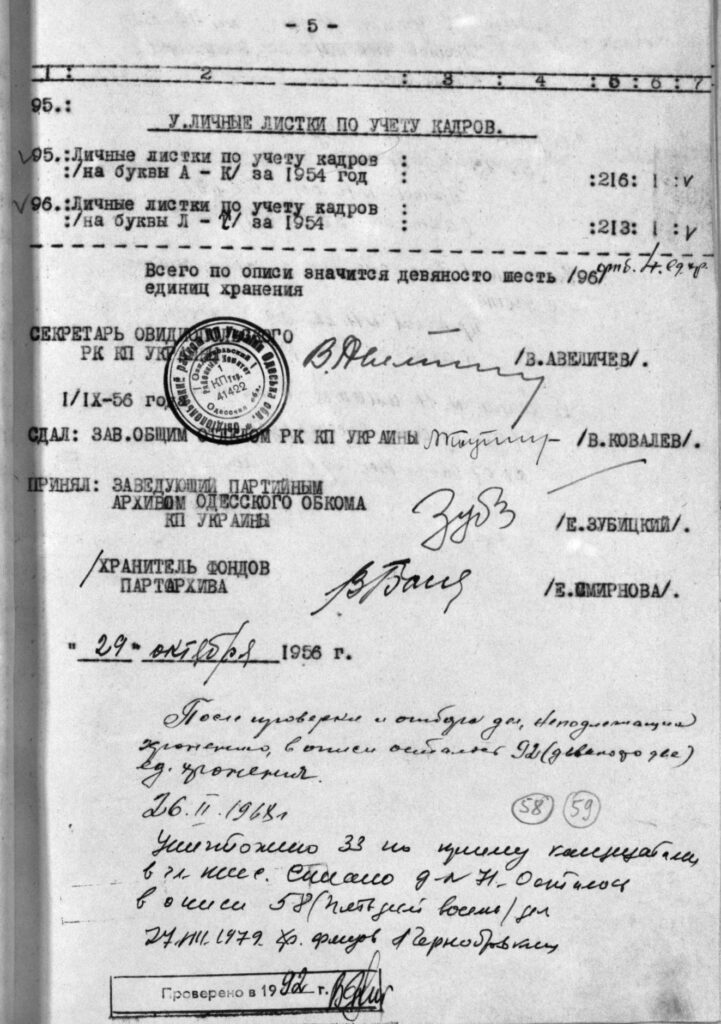 - 5 -
1 : 2 : 3 : 4 : 5 : 6 : 7
95.:
У.ЛИЧНЫЕ ЛИСТКИ ПО УЧЕТУ КАДРОВ.
✓95.:Личные листки по учету кадров :
:/на буквы А - К/ за 1954 год : :216: 1 :v
✓96.:Личные листки по учету кадров :
:/на буквы Л - / за 1954 : :213: 1 :v
Всего по описи значится девяносто шесть /96/
единиц хранения
СЕКРЕТАРЬ
РК КП /В.АВЕЛИЧЕВ/.
1/IX-56 год
СДАЛ: ЗАВ.ОБЩИМ ОТДЕЛОМ РК КП УКРАИНЫ /В.КОВАЛЕВ/.
ПРИНЯЛ: ЗАВЕДУЮЩИЙ ПАРТИЙНЫМ
АРХИВОМ ОДЕССКОГО ОБКОМА
КП УКРАИНЫ /Е.ЗУБИЦКИЙ/.
/ХРАНИТЕЛЬ ФОНДОВ
ПАРТАРХИВА /Е.СМИРНОВА/.
"29" октября 1956 г.
После проверки и отбора дел, неподлежащих
хранению, в описи осталось 92 (девяносто два)
ед. хранения.
26.II.1968г
58 59
Уничтожено 33 по приему
в Осталось
в описи 58 (пятьдесят восемь) дел
1979 Хр. фондов
Проверено в 1992 г.